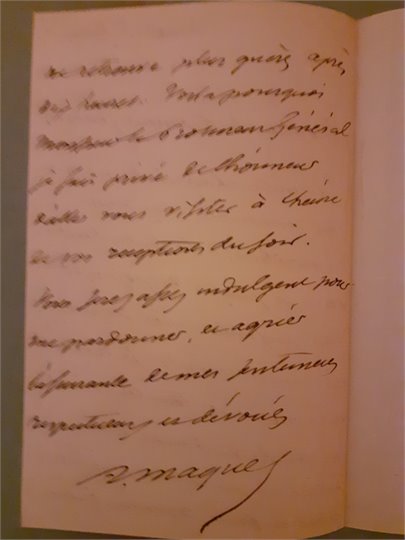 me retrouve plus guère après
dix heures. Voilà pourquoi
Monsieur le Procureur Général
je suis privé de l'honneur
d'aller vous visiter à l'heure
de vos réceptions du soir.
Vous serez assez indulgent pour
me pardonner, et agréer
l'assurance de mes sentiments
respectueux et dévoués
A. Maquet